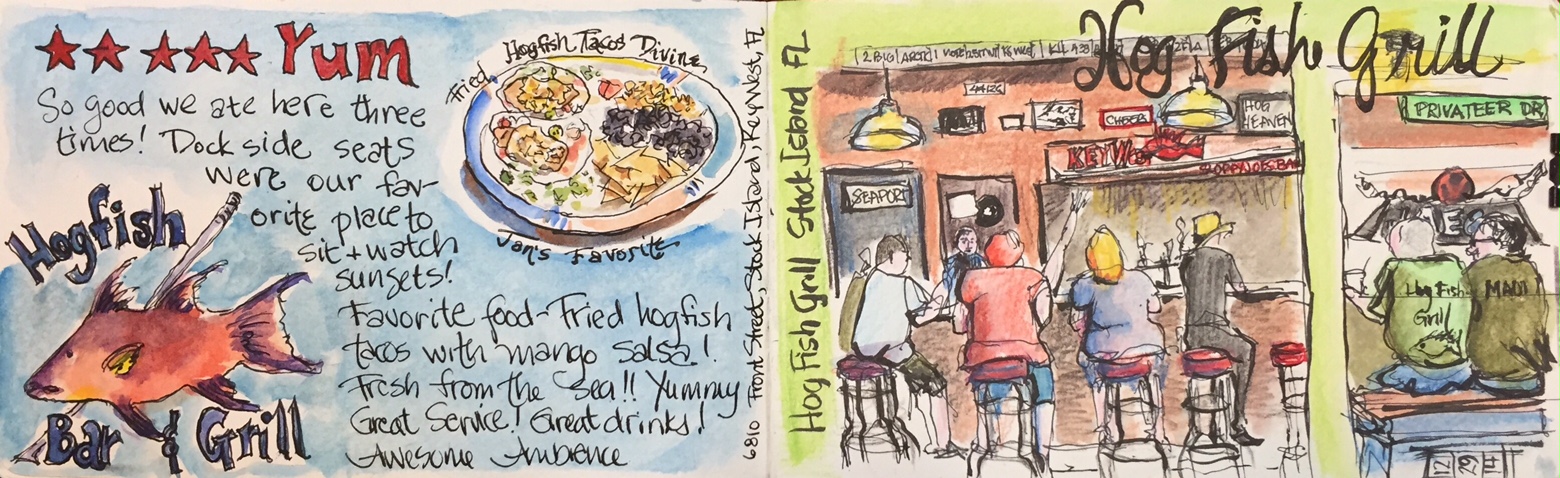 Yum
So good we ate here three
times! Dock side seats
were our fav-
orite place to
sit + watch
sunsets!
Favorite food - Fried hogfish
tacos with mango salsa!
Fresh from the sea!! Yummy
Great Service! Great drinks!
Awesome Ambience
Hogfish
Bar & Grill
Fried Hogfish Tacos Divine
Jan's Favorite
6810 Front Street, Stock Island, Key West, FL
Hog Fish Grill Stock Island FL
Hog Fish Grill
2 BIG
CHEER
HOG
HEAVEN
KEY WEST
SLOPPY JOES BAR
SEAPORT
PRIVATEER DR
Hog Fish
Grill